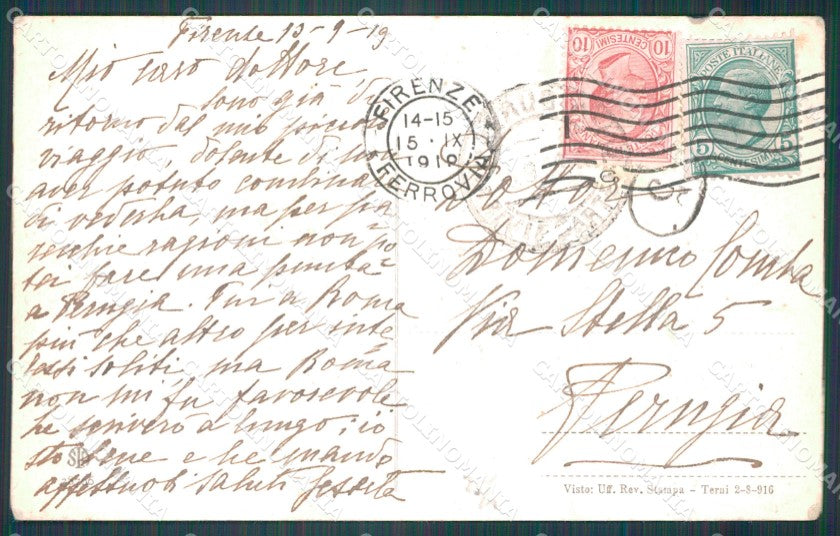 Firenze 15-9-19
Mio caro dottore,
sono già di
ritorno dal mio
viaggio, dolente di non
aver potuto combinare
di vederla, ma per pa
recchie ragioni non po
tei fare una punta
a Perugia. Fui a Roma
più che altro per inte
ressi soliti, ma Roma
non mi fu favorevole
le scriverò a lungo; io
sto bene e le mando
affettuosi saluti
FIRENZE
14-15
15 · IX
1919
FERROVIA
10 CENTESIMI 10
POSTE ITALIANE
5 5
Dottor
Domenico
Via Stella 5
Perugia
Visto: Uff. Rev. Stampa - Terni 2-8-916
CARTOLINOMANIA